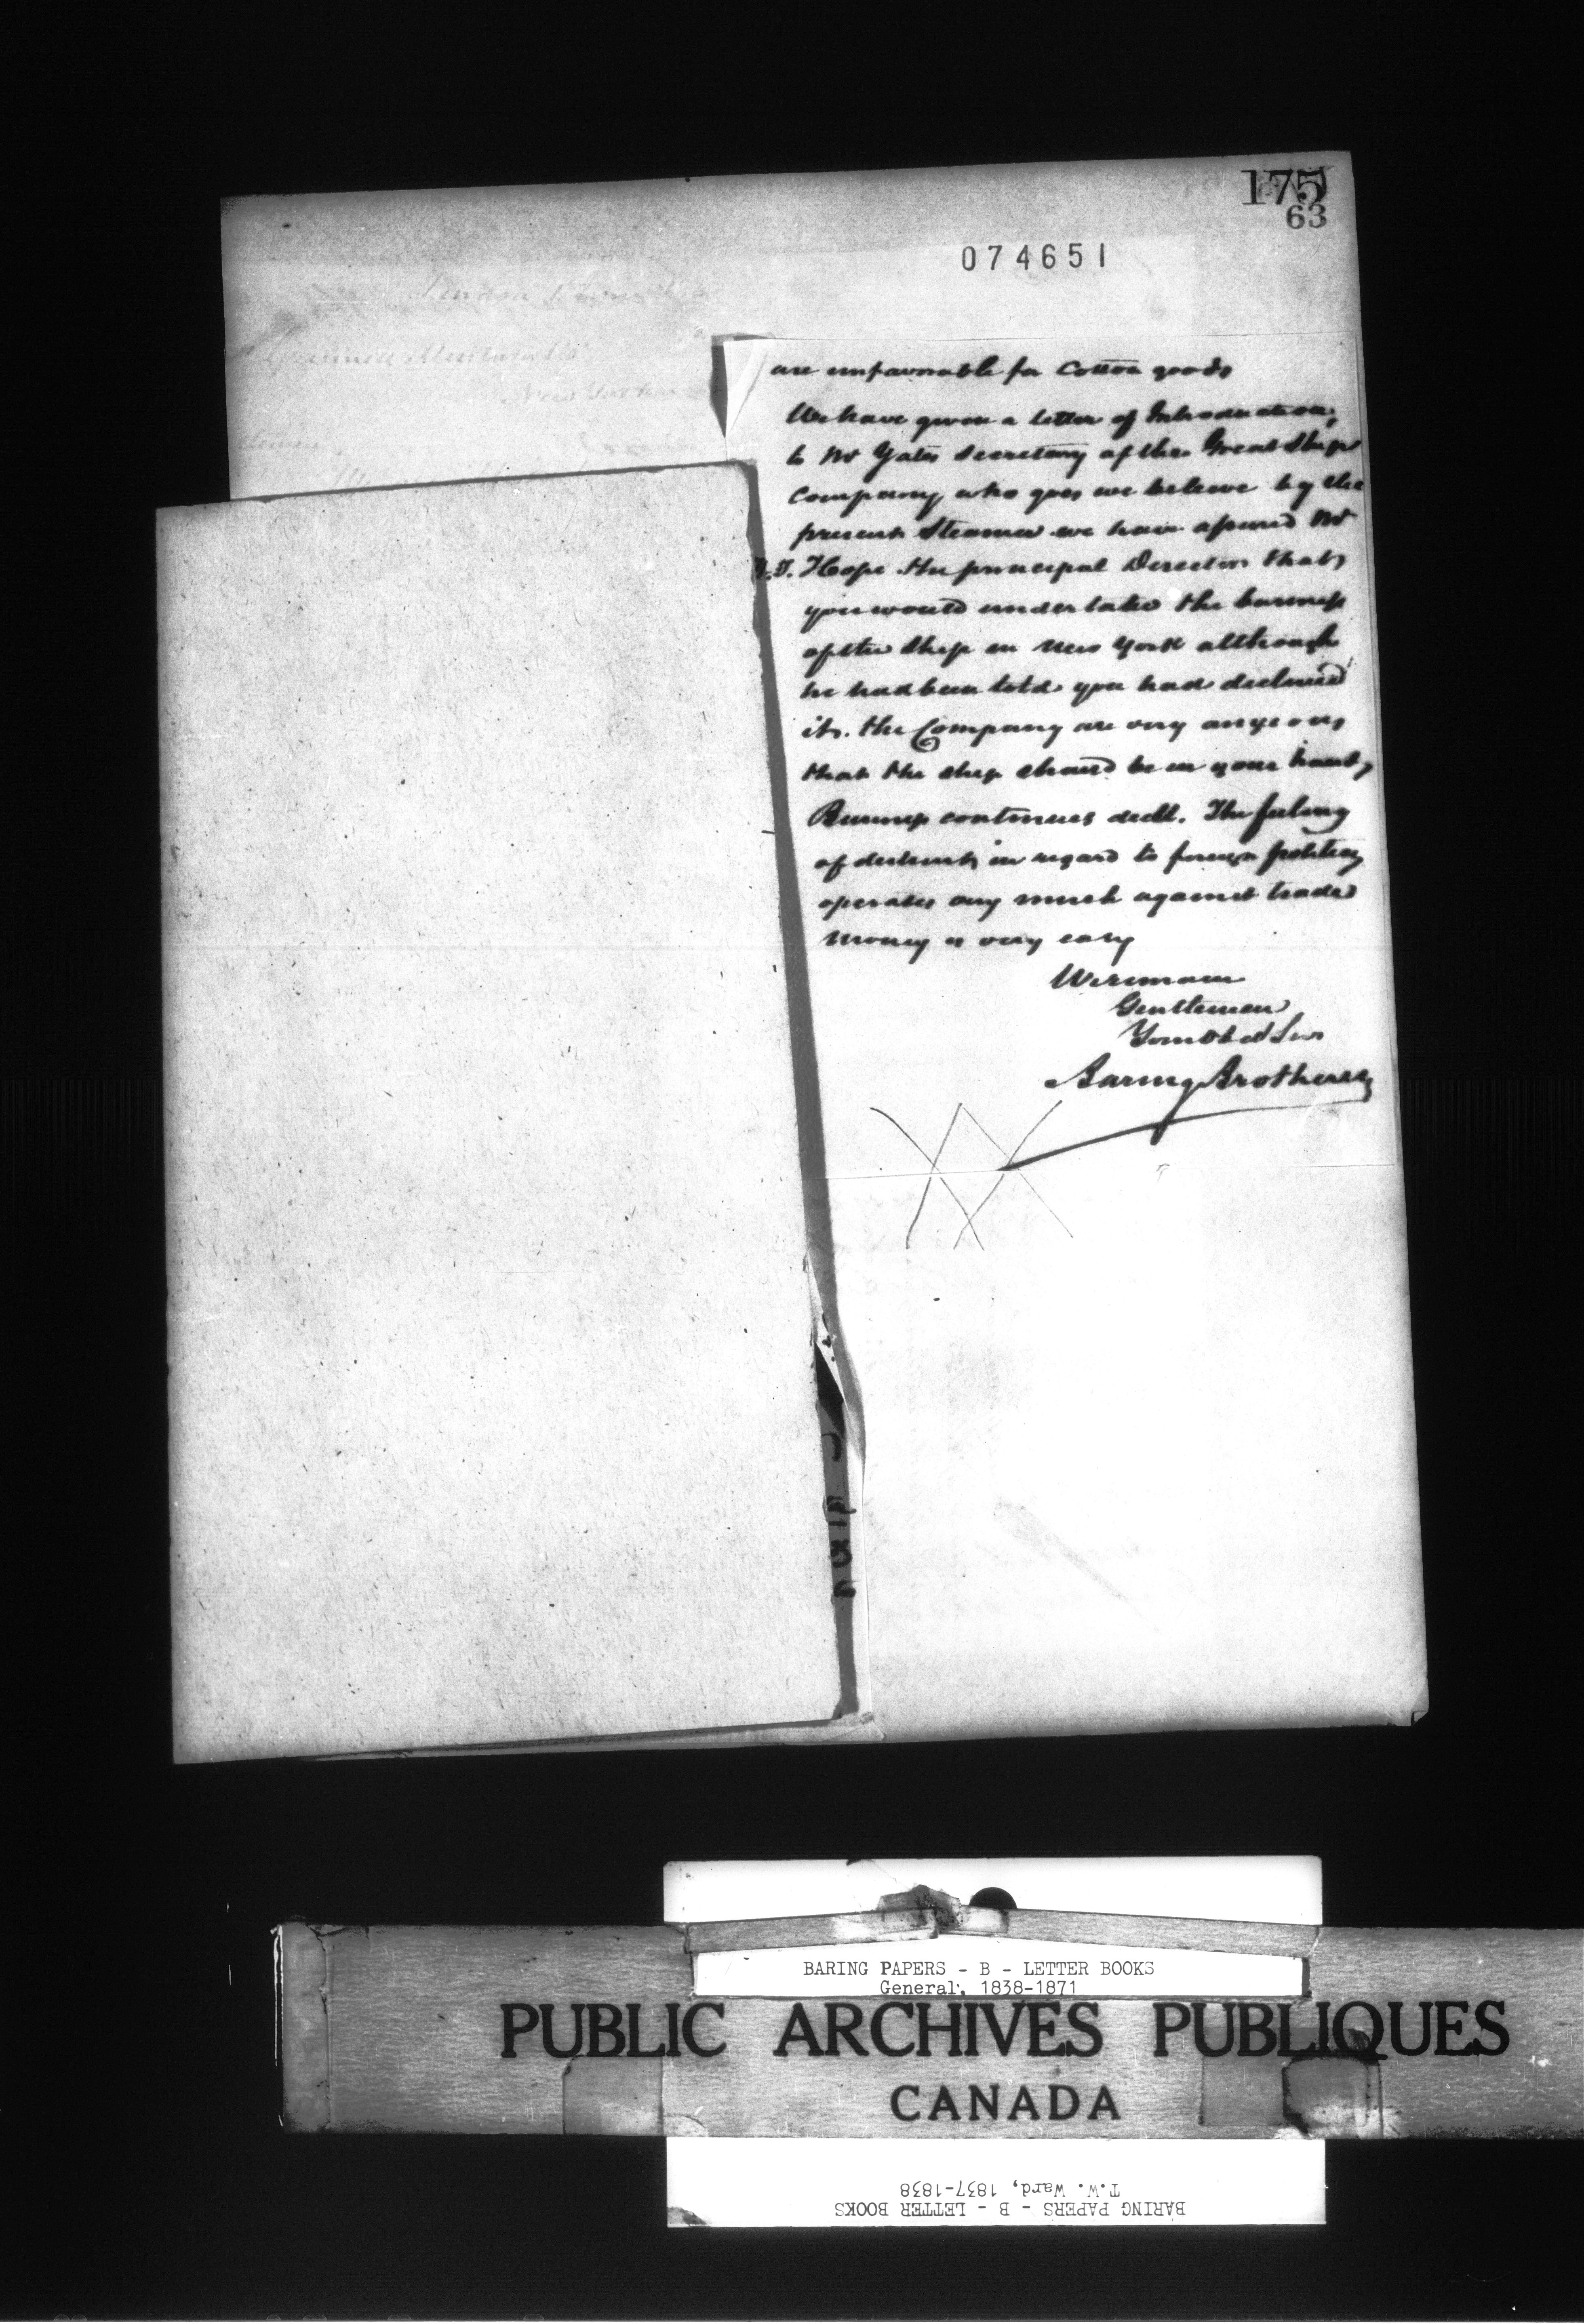 175
63
074651
are unfavorable for Cotton goods
We have given a letter of Introduction,
to Mr Yates Secretary of the Great Ship
Company who goes we believe by the
present Steamer we have assured Mr
T. Hope the principal Director that
you would undertake the business
of the Ship in New York although
he had been told you had declined
it. the Company are very anxious
that the ship should be in your hands,
Business continues dull. The feeling
of distrust in regard to foreign politics
operates very much against trade
Money is very easy
We remain
Gentlemen
Your Obed Svs
Baring Brothers
BARING PAPERS - B - LETTER BOOKS
General, 1838-1871
PUBLIC ARCHIVES PUBLIQUES
CANADA
BARING PAPERS - B - LETTER BOOKS
T.W. Ward, 1837-1838